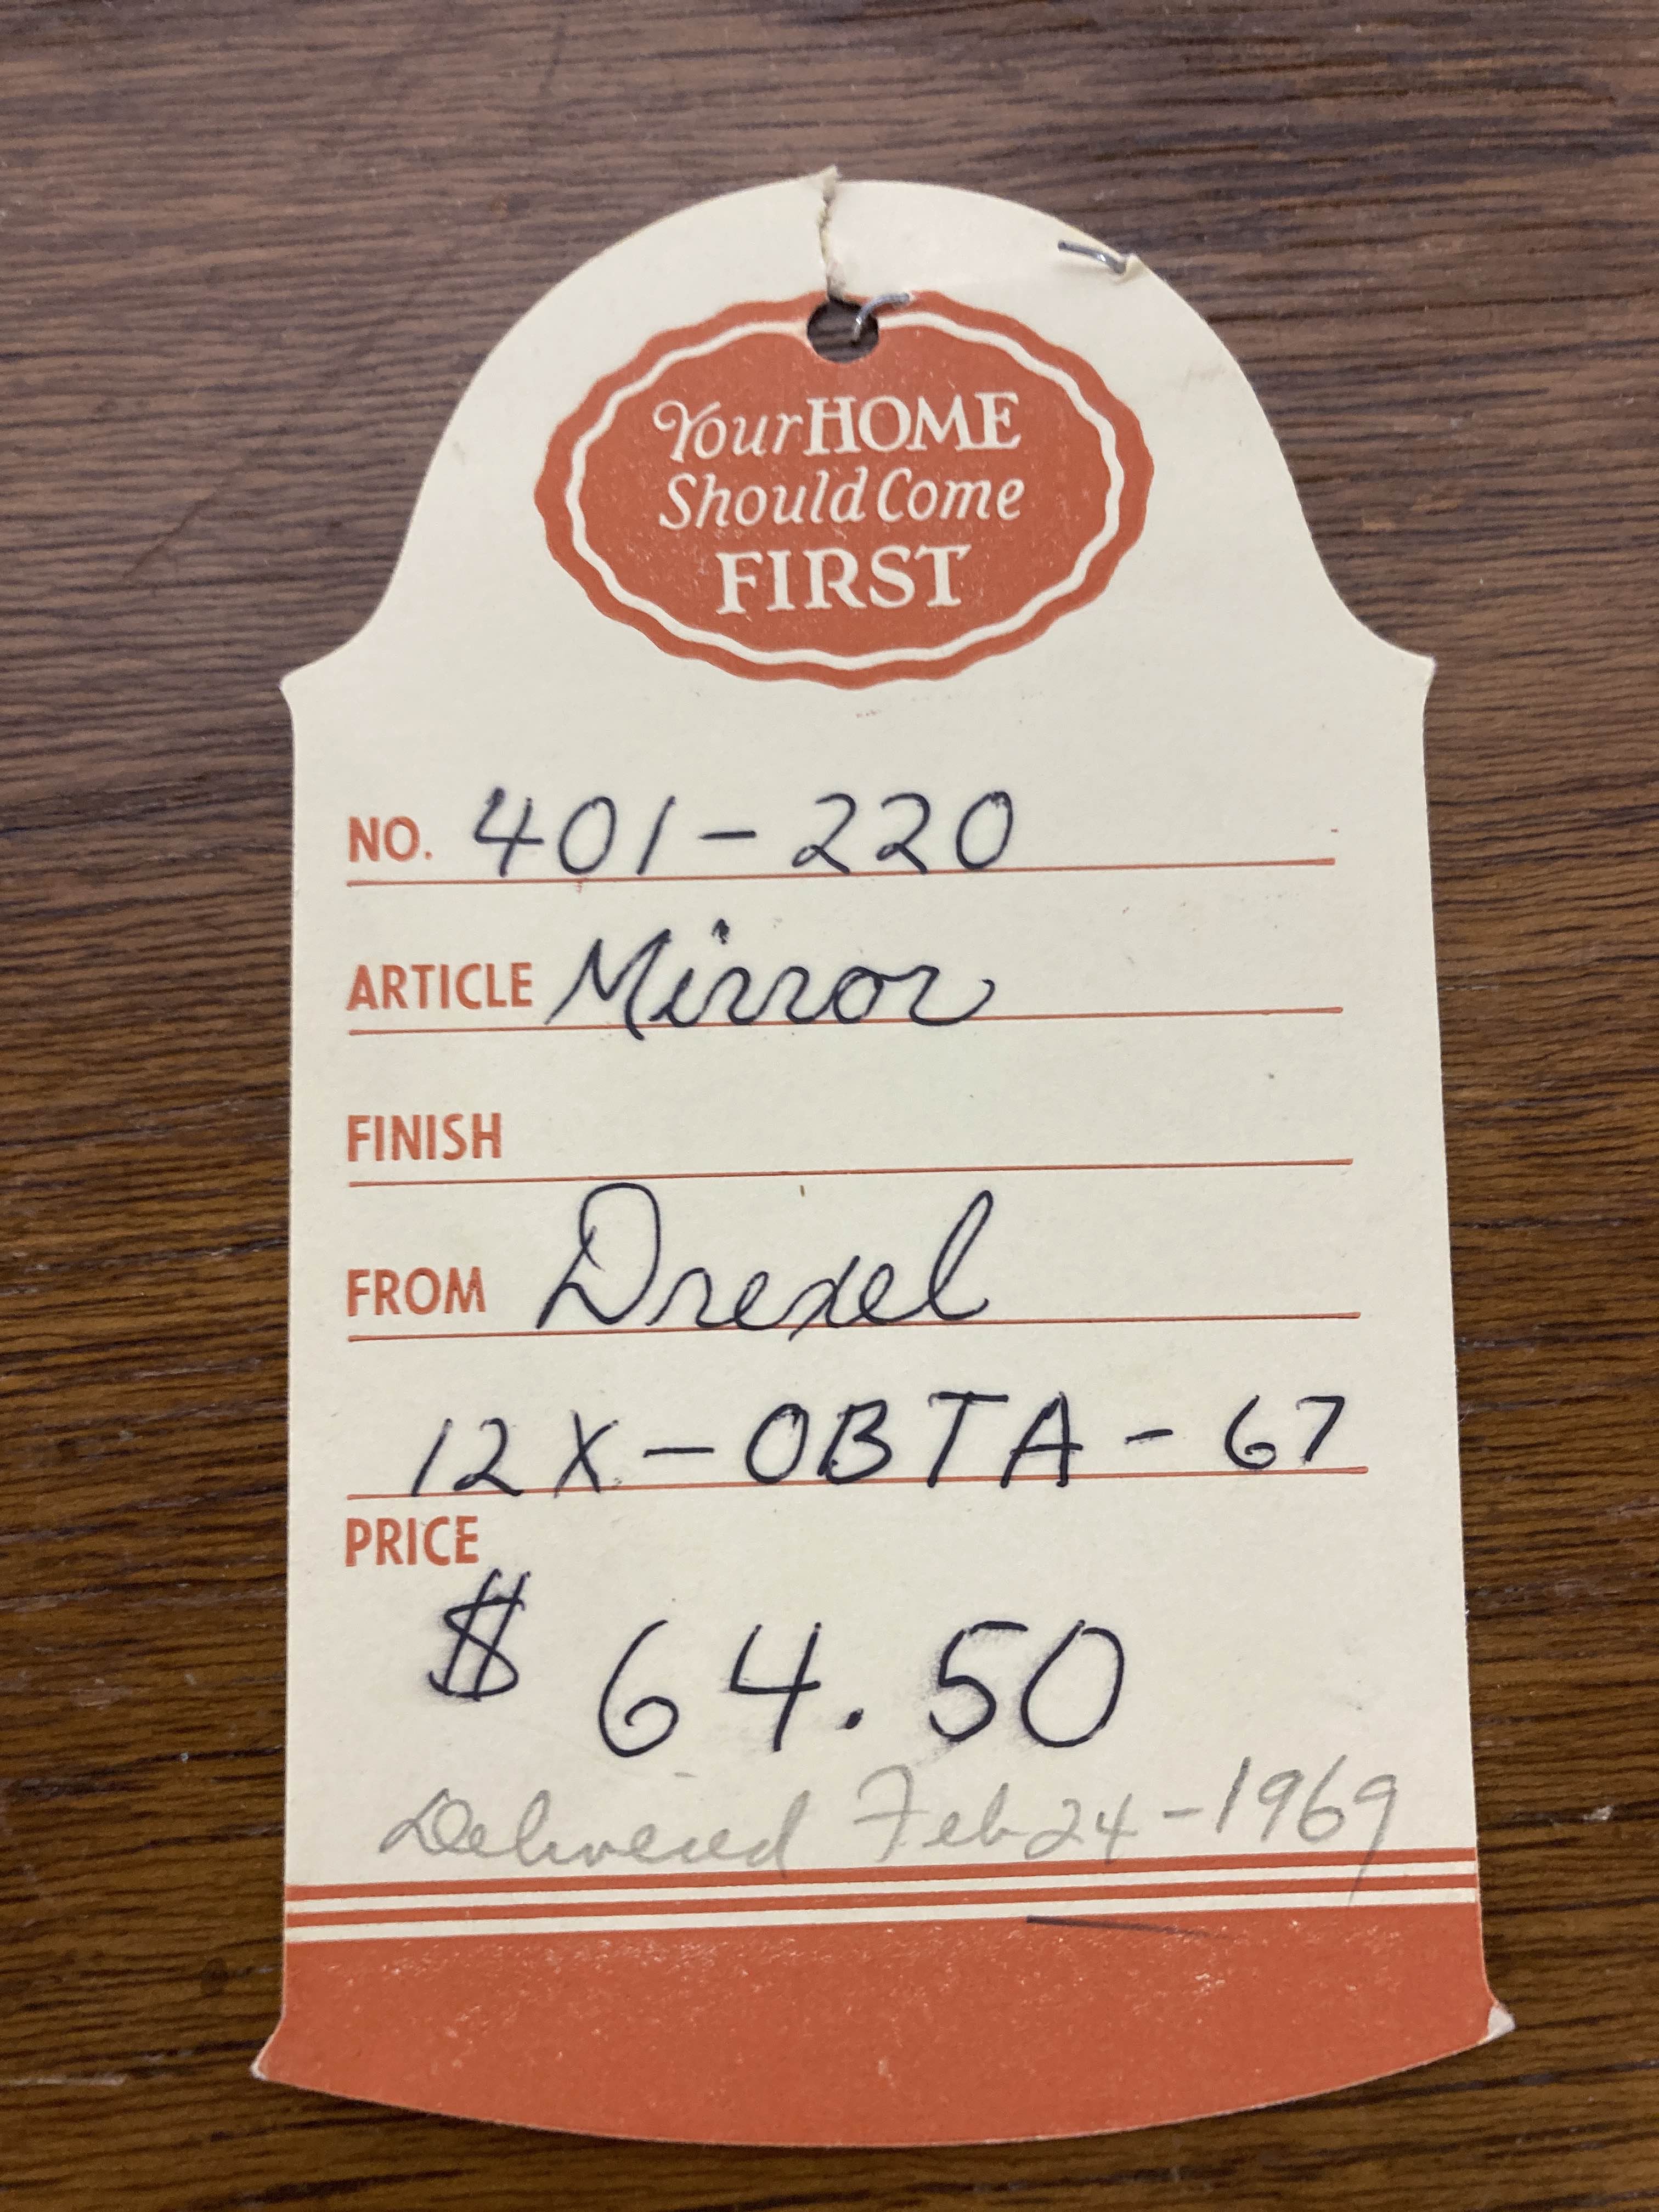 Your HOME
Should Come
FIRST
NO. 401-220
ARTICLE Mirror
FINISH
FROM Drexel
12X-OBTA-67
PRICE
$ 64.50
Delivered Feb 24-1969